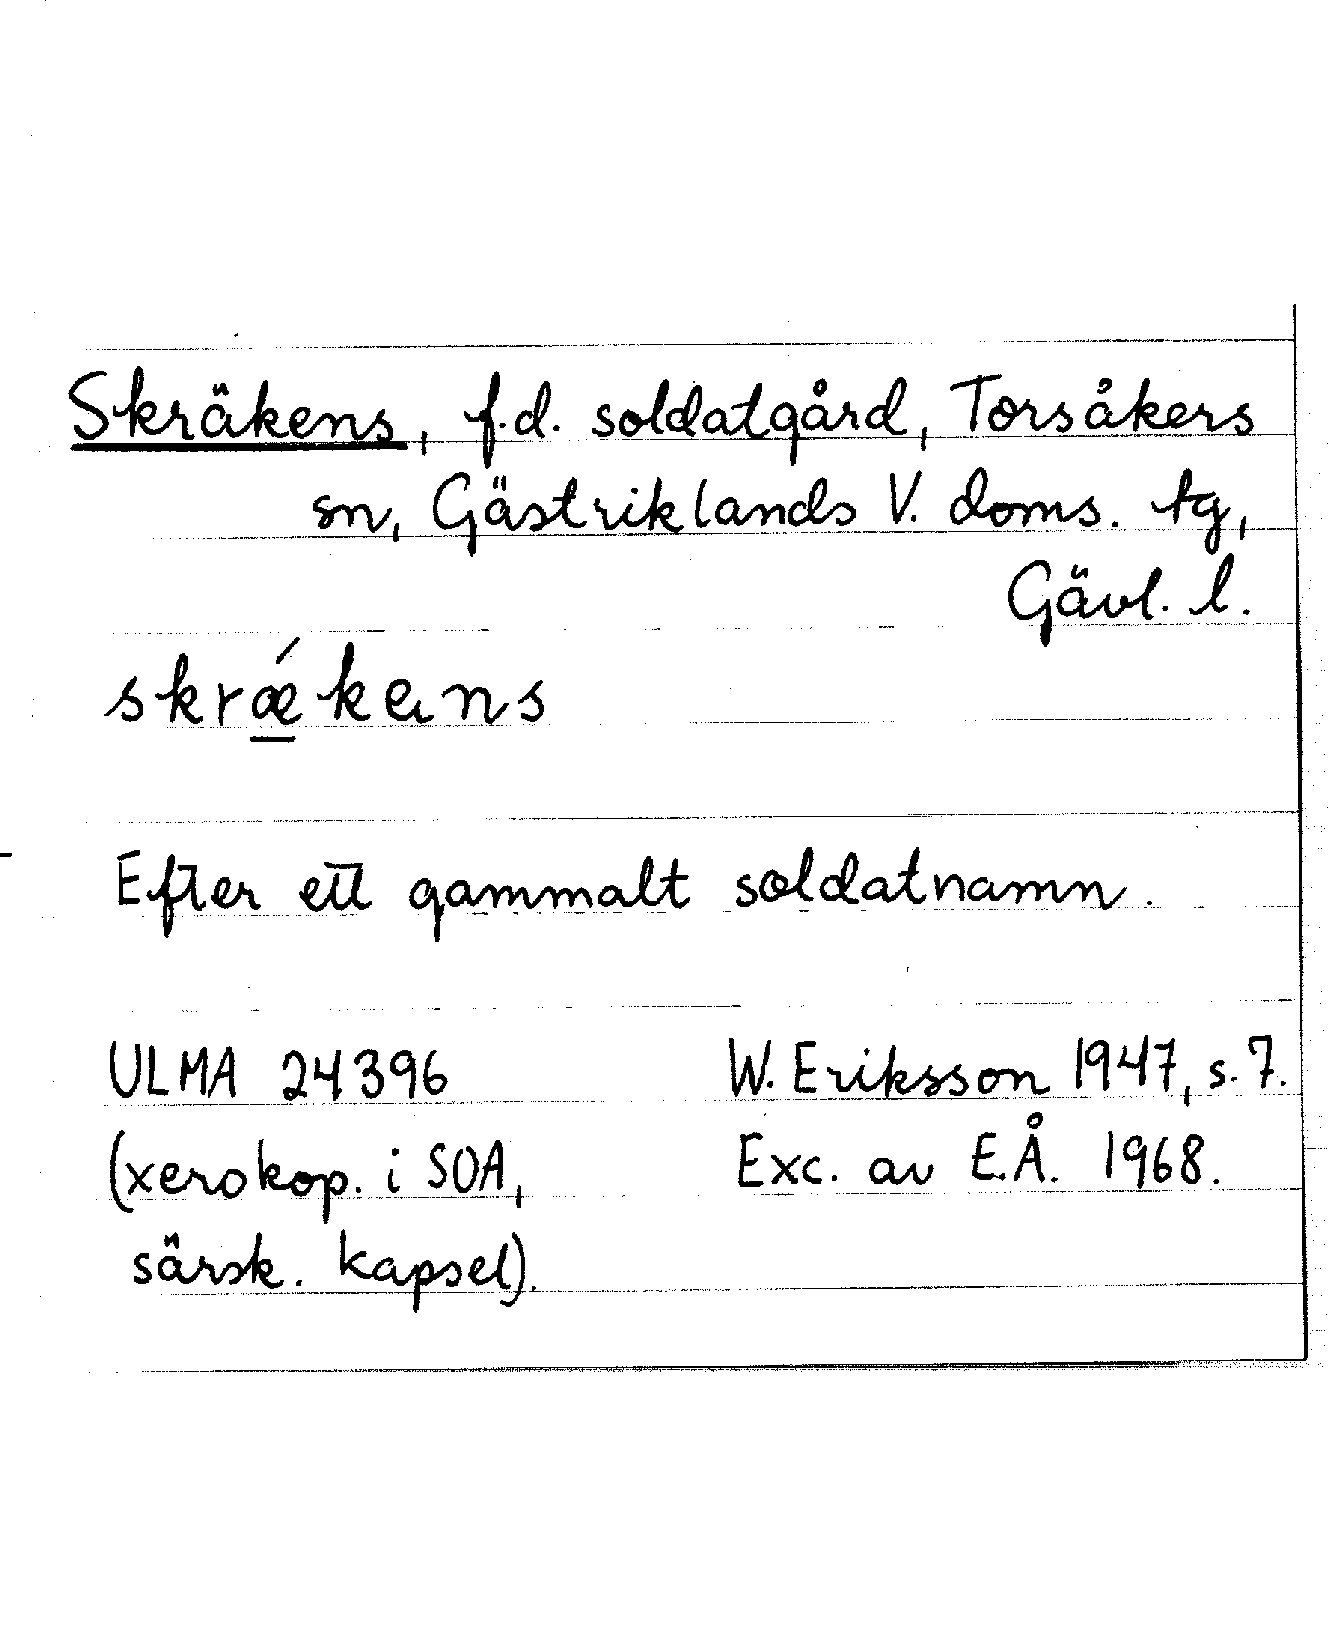 Skräkens, f.d. soldatgård, Torsåkers
sn, Gästriklands V. doms. tg,
Gävl. l.
skrǽ̱kens
Efter ett gammalt soldatnamn.
ULMA 24396 W. Eriksson 1947, s. 7.
(xerokop. i SOA, Exc. av E.Å. 1968.
särsk. kapsel).